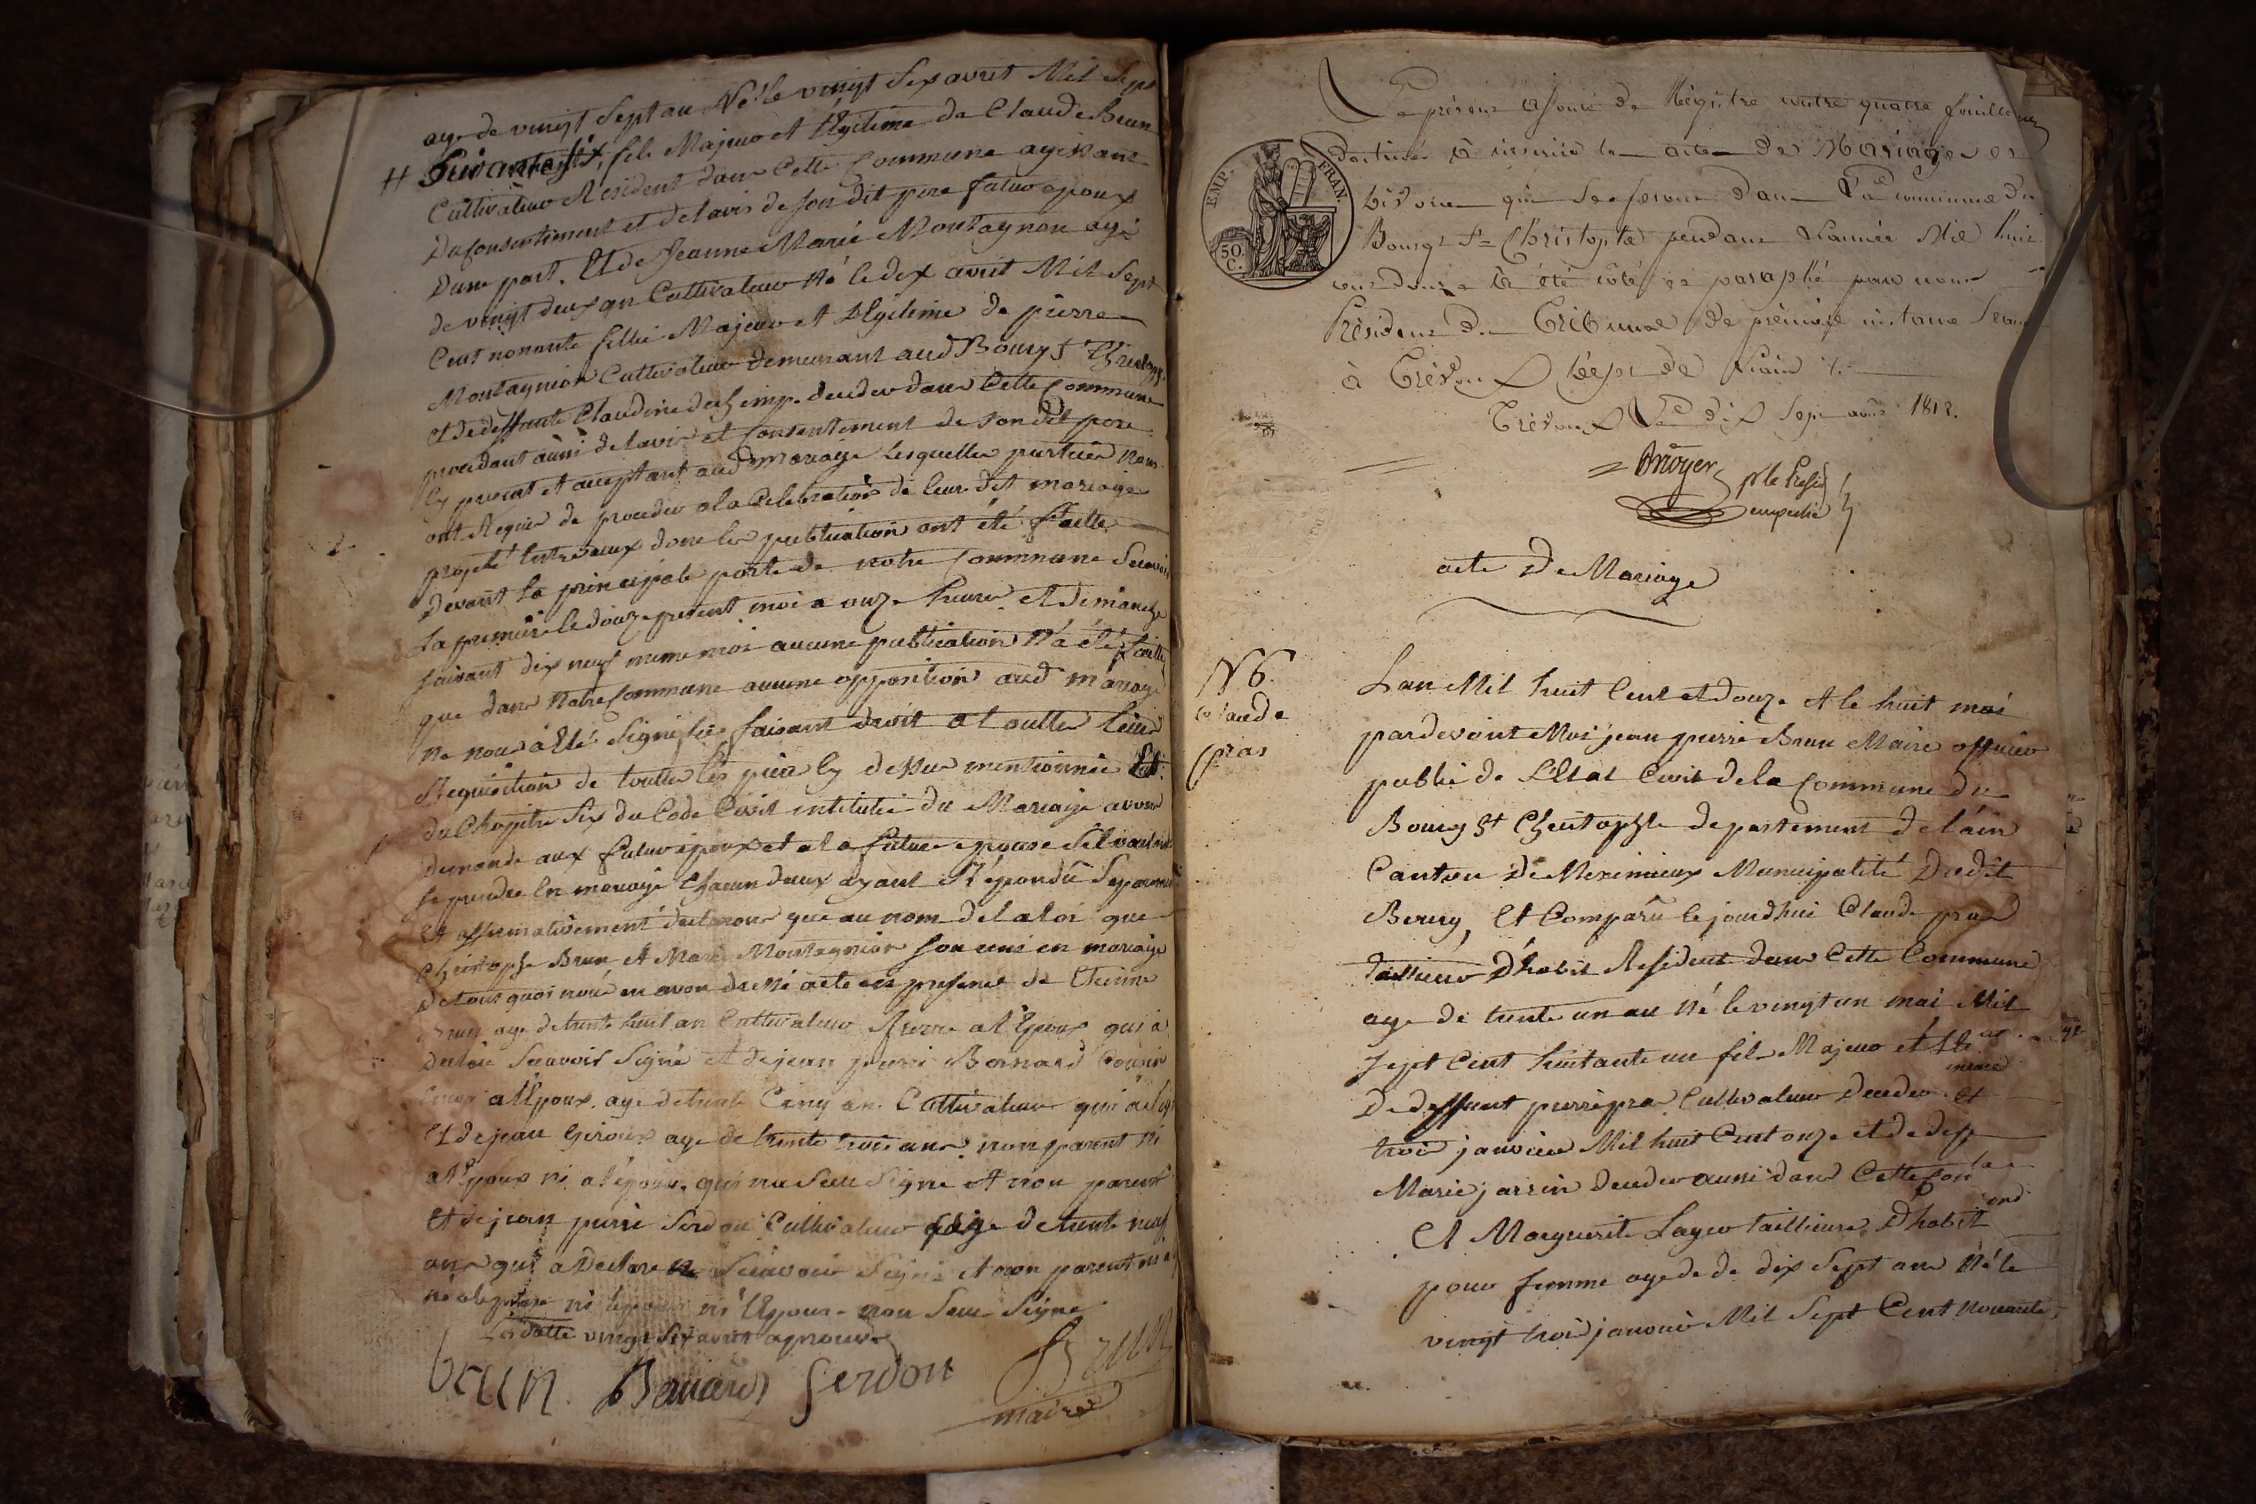 age de vingt Sept an Né le vingt Six avril Mil Sept
fils Majeur et légitime de Claude Brun
Cultivateur Résident dans Cette Commune agissant
Du Consentement et de lavis de son dit pere futur epoux
Dune part. Et de Jeanne Marie Montagnon agé
de vingt deux an Cultivateur Né le dix avril Mil Sept
Cent nonante fillie Majeur et Légitime de pierre
Montagnion Cultivateur demeurant aud Bourg St
et de deffunte Claudine decedee dans Cette Commune
procedant aussi de lavis et Consentement de Son dit pere
Cy present et acceptant aud mariage Lesquelles parties nous
ont Requis de proceder a la Celebration de leur dit mariage
projeté entre eux dont les publication ont été faitte
Devant la principale porte de notre Commune Scavoir
La premiere le douze present moi a onze heure et dimanche
Suivant dix neuf meme moi aucune publication Na été faitte
que dans Notre Commune aucune opposition aud mariage
Ne nous a Eté Signifiée faisant droit a
Requisition de toutte les piece Cy dessus mentionnée
du Chapitre Six du Code Civil intitulé du Mariage avons
demande aux futur epoux et a la future epouse Sil veulent
Se prendre en mariage Chacun deux ayant Répondû Separement
Et affirmativement declarons que au nom de la loi que
Christophe Brun et Marie Montagnion Son uni en mariage
De tout quoi nous en avon dressé acte en presence de Etienne
Brun age de trente huit an Cultivateur frerre a lEpoux qui a
Scavoir Signé et de jean pierre Bernard Cousin
a lEpoux age de trente Cinq an Cultivateur qui a
Et de jean Giroux age de trente trois ans non parent Ni
a lEpoux ni a lépouse qui na Seu Signé et non parent
Et de jean pierre Serdon Cultivateur age de trente neuf
ans qui a Declare Scavoir Signé et non parent
ni lepoux ni lEpouse non Seu Signe
La datte vingt Six avril aprouve
brun. Bernard Serdon Brun
maire
Le présent Registre contre quatre feuillets
destiné à recevoir les actes de Mariages et
divorces qui se feront dans la Commune du
Bourg St Christophe pendant l'année Mil huit
cent douze a été côté et paraphé par nous
Président du Tribunal de première instance Séant
à Trévoux dépt de l'ain
Trévoux Le dix Sept 1812.
EMP. FRAN.
50 C.
pr le Présid
empeché
acte De Mariage
N 6.
Claude
pras
Lan Mil huit Cent et douze et le huit mai
pardevant Moi jean pierre Brun Maire officier
public de LEtat Civil de la Commune du
Bourg St Christophle departement de lain
Canton De Meximieux Municipalité Dudit
Bourg, Et Comparû le jourdhui Claude pras
tailleur Dhabit Résident dans Cette Commune
age de trente un an Né le vingt un mai Mil
Sept Cent huitante un fils Majeur et
De deffunt pierre pra Cultivateur Decedee
trois janvier Mil huit Cent onze et de deff
Marie jarrin Decedee aussi dans Cette Com
Et Marguerite Layeo tailleuse Dhabit
pour femme agede de dix Sept ans Né le
vingt trois janvier Mil Sept Cent nonante